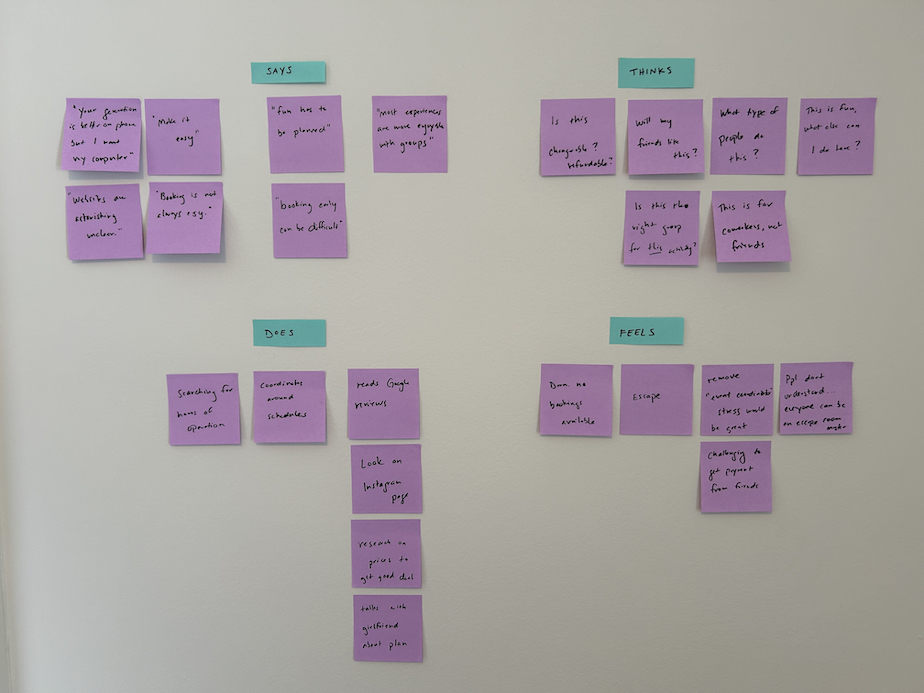 SAYS
"Your generation
is better on phone
but I need
my computer"
"Make it
easy"
"fun has to
be planned"
"most experiences
are more enjoyable
with groups"
"Websites are
astonishing
unclear."
"Booking is not
always easy."
"booking only
can be difficult"
THINKS
Is this
changeable?
refundable?
Will my
friends like
this?
What type of
people do
this?
This is fun,
what else can
I do here?
Is this the
right group
for this activity?
This is for
coworkers, not
friends
DOES
Searching for
hours of
operation
coordinates
around
schedules
reads Google
reviews
Look on
Instagram
page
research on
prices to
get good deal
talks with
girlfriend
about plan
FEELS
Damn. no
bookings
available
Escape
remove
"event coordinator"
stress would
be great
Ppl dont
understand...
everyone can be
an escape room
challenging to
get payment
from friends